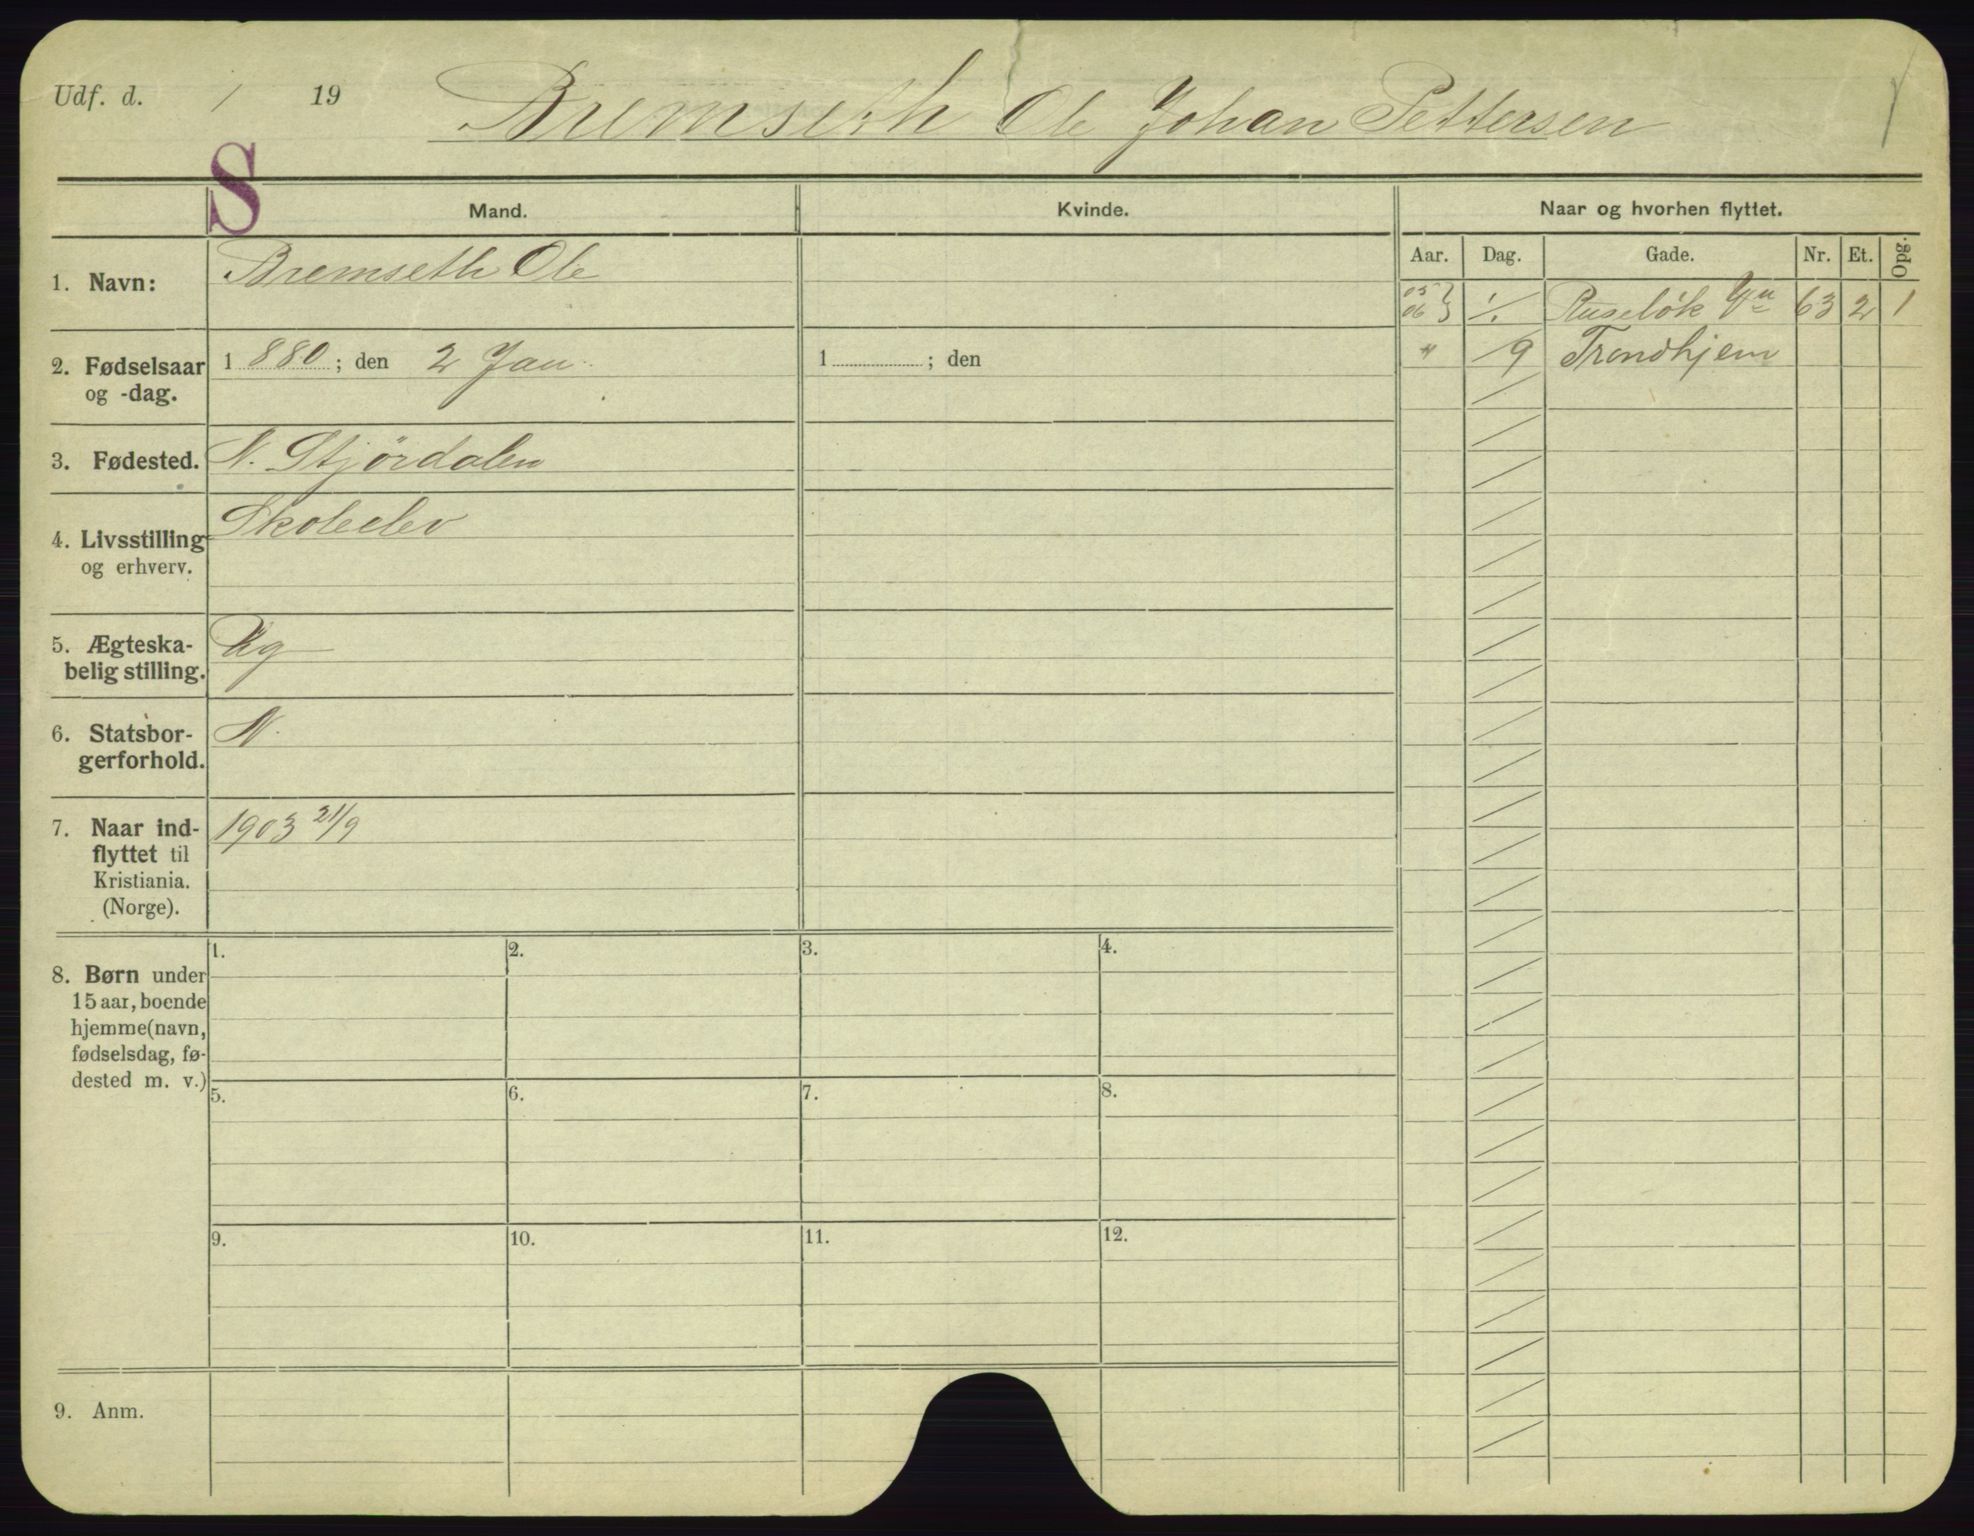 Udf. d. / 19
Bremseth Ole Johan Pettersen
S
Mand.
Kvinde.
Naar og hvorhen flyttet.
Aar. Dag. Gade. Nr. Et. Opg.
1. Navn: Bremseth Ole
05 06 } 1/1 Ruseløk 63 2 1
" /9 Trondhjem
2. Fødselsaar og -dag. 1 880 ; den 2 Jan.
1 ; den
3. Fødested. N. Stjørdalen
4. Livsstilling og erhverv. Skoleelev
5. Ægteska-
belig stilling. Ug
6. Statsbor-
gerforhold. N.
7. Naar ind-
flyttet til
Kristiania.
(Norge).
1903 21/9
8. Børn under
15 aar, boende
hjemme (navn,
fødselsdag, fø-
dested m. v.)
1. 2. 3. 4.
5. 6. 7. 8.
9. 10. 11. 12.
9. Anm.